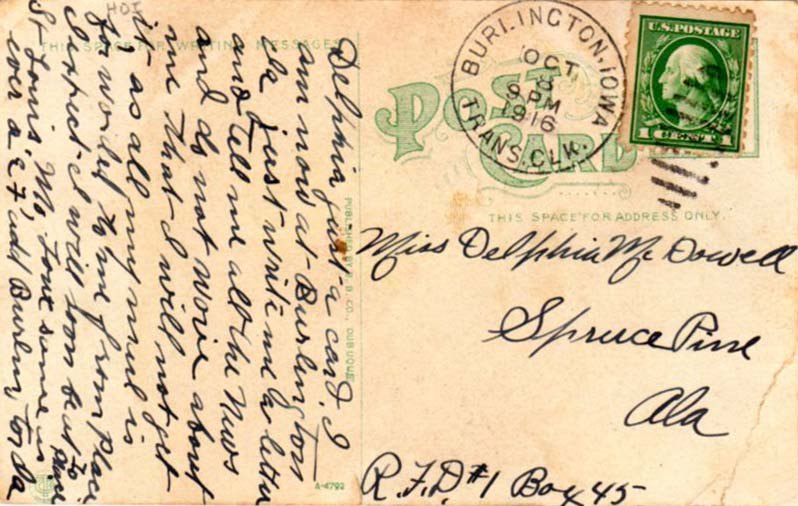 HOI
THIS SPACE FOR WRITING MESSAGES
Delphia just a card. I
am now at Burlington
Ia. just write me a letter
and tell me all the News
and do not worie about
me that I will not get
it as all my mail is
forworded to me from Place
to Place
I expect I will soon be at
St Louis, Mo. some
ever a add Burlington Ia
PUBLISHED BY B. CO., DUBUQUE
A-4792
POST CARD
BURLINGTON, IOWA
OCT.
8
9 PM
1916
TRANS. CLK.
U.S. POSTAGE
1 CENT 1
THIS SPACE FOR ADDRESS ONLY.
Miss Delphia McDowell
Spruce Pine
Ala
R.F.D. #1 Box 45